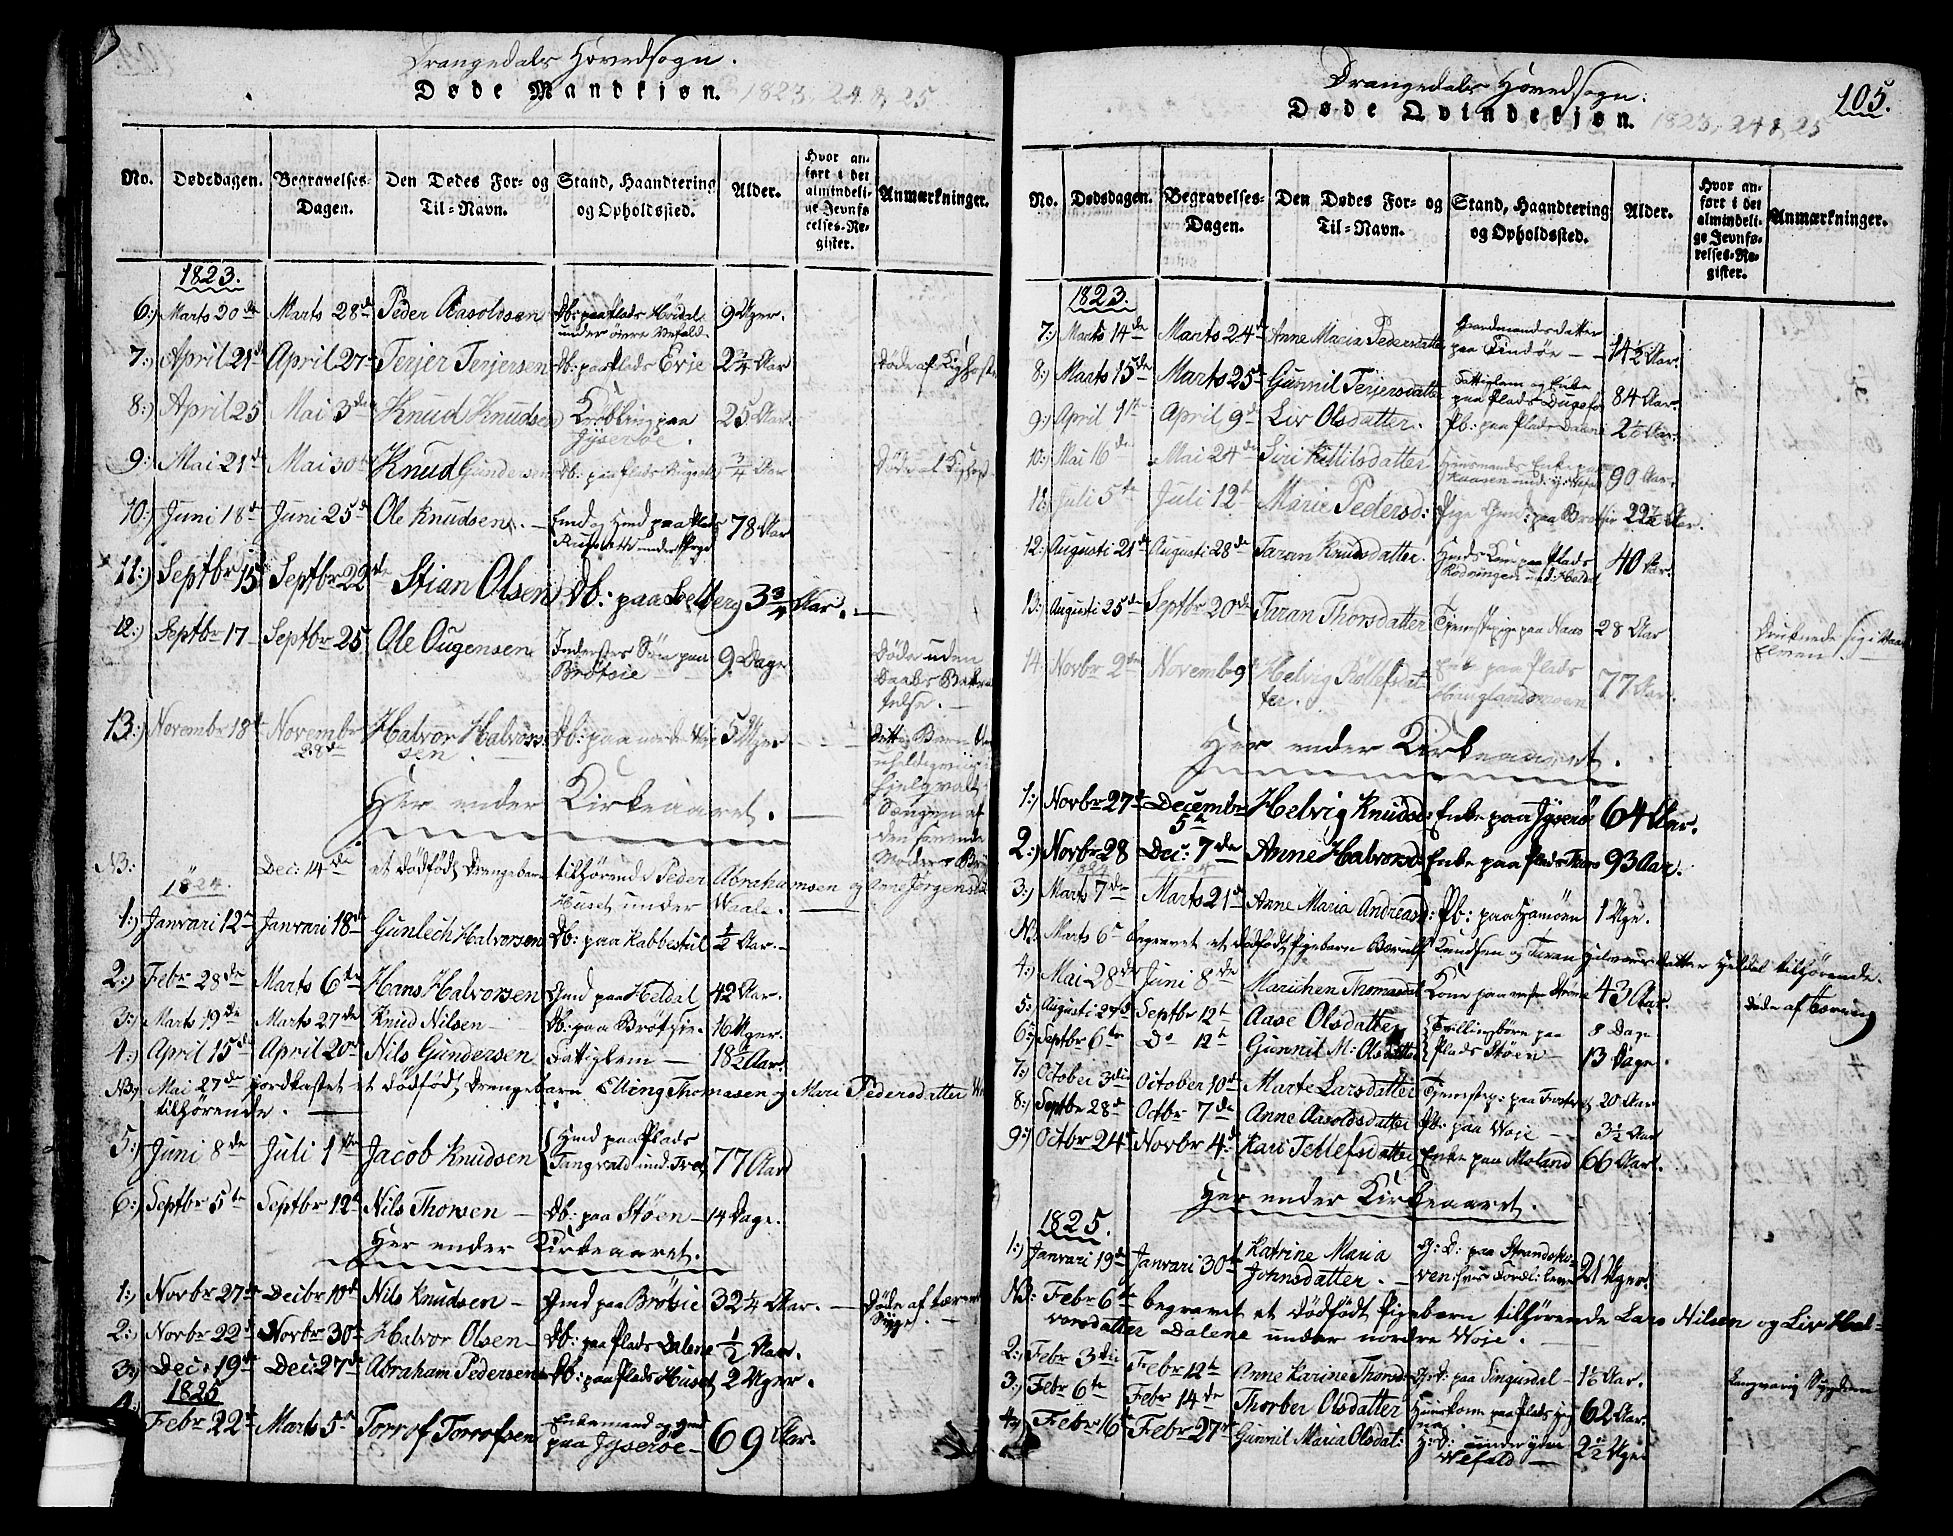 Drangedals Hovedsogn.
Døde Mandkjøn. 1823, 24 & 25
No. Dødsdagen. Begravelses-Dagen. Den Dødes For- og Til-Navn. Stand, Haandtering og Opholdssted. Alder. Hvor anført i det almindelige Jevnførelses-Register. Anmærkninger.
1823.
6.) Marts 20de Marts 28de Peder Aasoldsen Db: paa Plads Høidal under øvre Vefald 9 Uger.
7.) April 21de April 27de Terjer Terjersen Db: paa Plads Evje 2 3/4 Aar Døde af Kighoste
8.) April 25 Mai 3de Knud Knudsen paa Gjserøe. 25 Aar.
9.) Mai 21de Mai 30te Knud Gundersen Db: paa Plads 3/4 Aar Døde af Kighoste
10.) Juni 18de Juni 25de Ole Knudsen. Hmd paa Plads under 78 Aar
11.) Septbr 15de Septbr 22de Stian Olsen Db: paa Solberg 3 3/4 Aar.
12.) Septbr 17 Septbr 25 Ole Ougensen Inderstes Søn paa Brøtsie 9 Dage Døde uden Daabs Bekræftelse.
13.) Novembr 18de Novembr 28de Halvor Halvorssen Db: paa nordre Woje 5 Uger Dette Barn
Her ender Kirkeaaret.
NB: Dec: 14de et dødfødt Drengebarn tilhørende Peder Abrahamsen og Anne Jørgensdatter
Huset under Waale.
1824.
1.) Januari 12te Januari 18de Gunlech Halvorsen Db: paa Kabbestul 1/2 Aar.
2.) Febr 28de Marts 6te Hans Halvorsen Gmd paa Heldal 42 Aar.
3.) Marts 19de Marts 27de Knud Nilsen Db: paa Brøtsie. 16 Uger.
4.) April 15de April 20de Nils Gundersen Fattiglem 18 1/2 Aar.
NB. Mai 27de jordkastet et dødfødt Drengebarn Elling Thomasen og Mari Pedersdatter
tilhørende.
5.) Juni 8de Juli 1ste Jacob Knudsen Hmd paa Plads Tangvald und: 77 Aar
6.) Septbr 5te Septbr 12te Nils Thorsen Db: paa Støen 14 Dage.
Her ender Kirkeaaret.
1.) Novbr 27de Decbr 10de Nils Knudsen Gmd paa Brøtsie 32 1/4 Aar. Døde af tærende Syge.
2.) Novbr 22de Novbr 30te Halvor Olsen Db: paa Plads Dalene 1/2 Aar.
3.) Dec: 19de Dec: 27de Abraham Pedersen Db: paa Plads Huset 2 Uger.
1825
4. Febr 22de Marts 5te Torrof Torrofsen Enkemand og Gmd paa Gjserøe 69 Aar.
Drangedals Hovedsogn.
105.
Døde Qvindekjøn. 1823, 24 & 25
No. Dødsdagen. Begravelses-Dagen. Den Dødes For- og Til-Navn. Stand, Haandtering og Opholdssted. Alder. Hvor anført i det almindelige Jevnførelses-Register. Anmærkninger.
1823.
7.) Marts 14de Marts 24de Anne Maria Pedersdatter Gaardmandsdatter paa Tindøe 14 1/2 Aar.
8.) Marts 15de Marts 25de Gunnil Terjersdatter Fattiglem og Enke paa Plads 84 Aar.
9.) April 1ste April 9de Liv Olsdatter. Pb: paa Plads 2 1/2 Aar.
10.) Mai 16de Mai 24de Siri Kittilsdatter Huusmands Enke paa 90 Aar.
11.) Juli 5te Juli 12te Marie Pedersd: Pige paa Brøtsie 22 1/2 Aar.
12.) Augusti 21de Augusti 28de Taran Knudsdatter Hmds Kone paa Plads 40 Aar.
13.) Augusti 25de Septbr 20de Taran Thorsdatter Tjenestepige paa Naas 28 Aar Druknede sig i Elven.
14. Novbr 2de Novemb 9de Helvig Rollefsdatter. Enke paa Plads Hauglandsmoen 77 Aar.
Her ender Kirkeaaret.
1.) Novbr 27de Decembr 5te Helvig Knudsd: Enke paa Gjserøe 64 Aar.
2.) Novbr 28 Dec: 7de Anne Halvorsd: Enke paa Plads 93 Aar.
1824
3.) Marts 7de Marts 21de Anne Maria Andreasd: Pb: paa 1 Uge.
NB. Marts 6te begravet et dødfødt Pigebarn Knudsen og Taran Heldal tilhørende.
4.) Mai 28de Juni 8de Marichen Thomasdat Kone paa Strøme 43 Aar.
5.) Augusti 27de Septbr 12te Aase Olsdatter Tvillingbørn paa 8 Dage Døde af Tæring
6.) Septbr 6te Do 12te Gunnil M: Olsdatter Plads Støen 13 Dage.
7.) October 3die October 10de Marte Larsdatter Tjenestep: paa 20 Aar
8.) Septbr 28de Octbr 7de Anne Aasoldsdatter Pb: paa Woje 3 1/2 Aar
9.) Octbr 24de Novbr 4de Kari Tellefsdatter Enke paa Moland 66 Aar.
Her ender Kirkeaaret.
1825.
1.) Januari 19de Januari 30te Katrine Maria Johnsdatter. G: D: paa 21 Uger.
NB: Febr 6te begravet et dødfødt Pigebarn tilhørende Lars Nilsen og Liv Hal-
vorsdatter Dalene under nordre Woje.
2.) Febr 3die Febr 12te Anne Karine Thorsd: paa 1 1/2 Aar. Langvarig Sygdom
3.) Febr 6te Febr 14de Thorber Olsdatter Huuskone paa Plads 62 Aar.
4.) Febr 16de Febr 27de Gunnil Maria Olsdat: H: D: under ytre Wefald 2 1/2 Uge